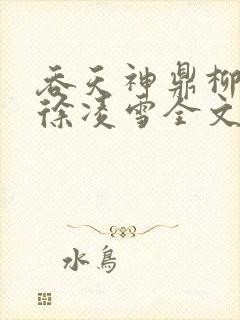 吞天神鼎柳
徐凌雪全文
水鸟